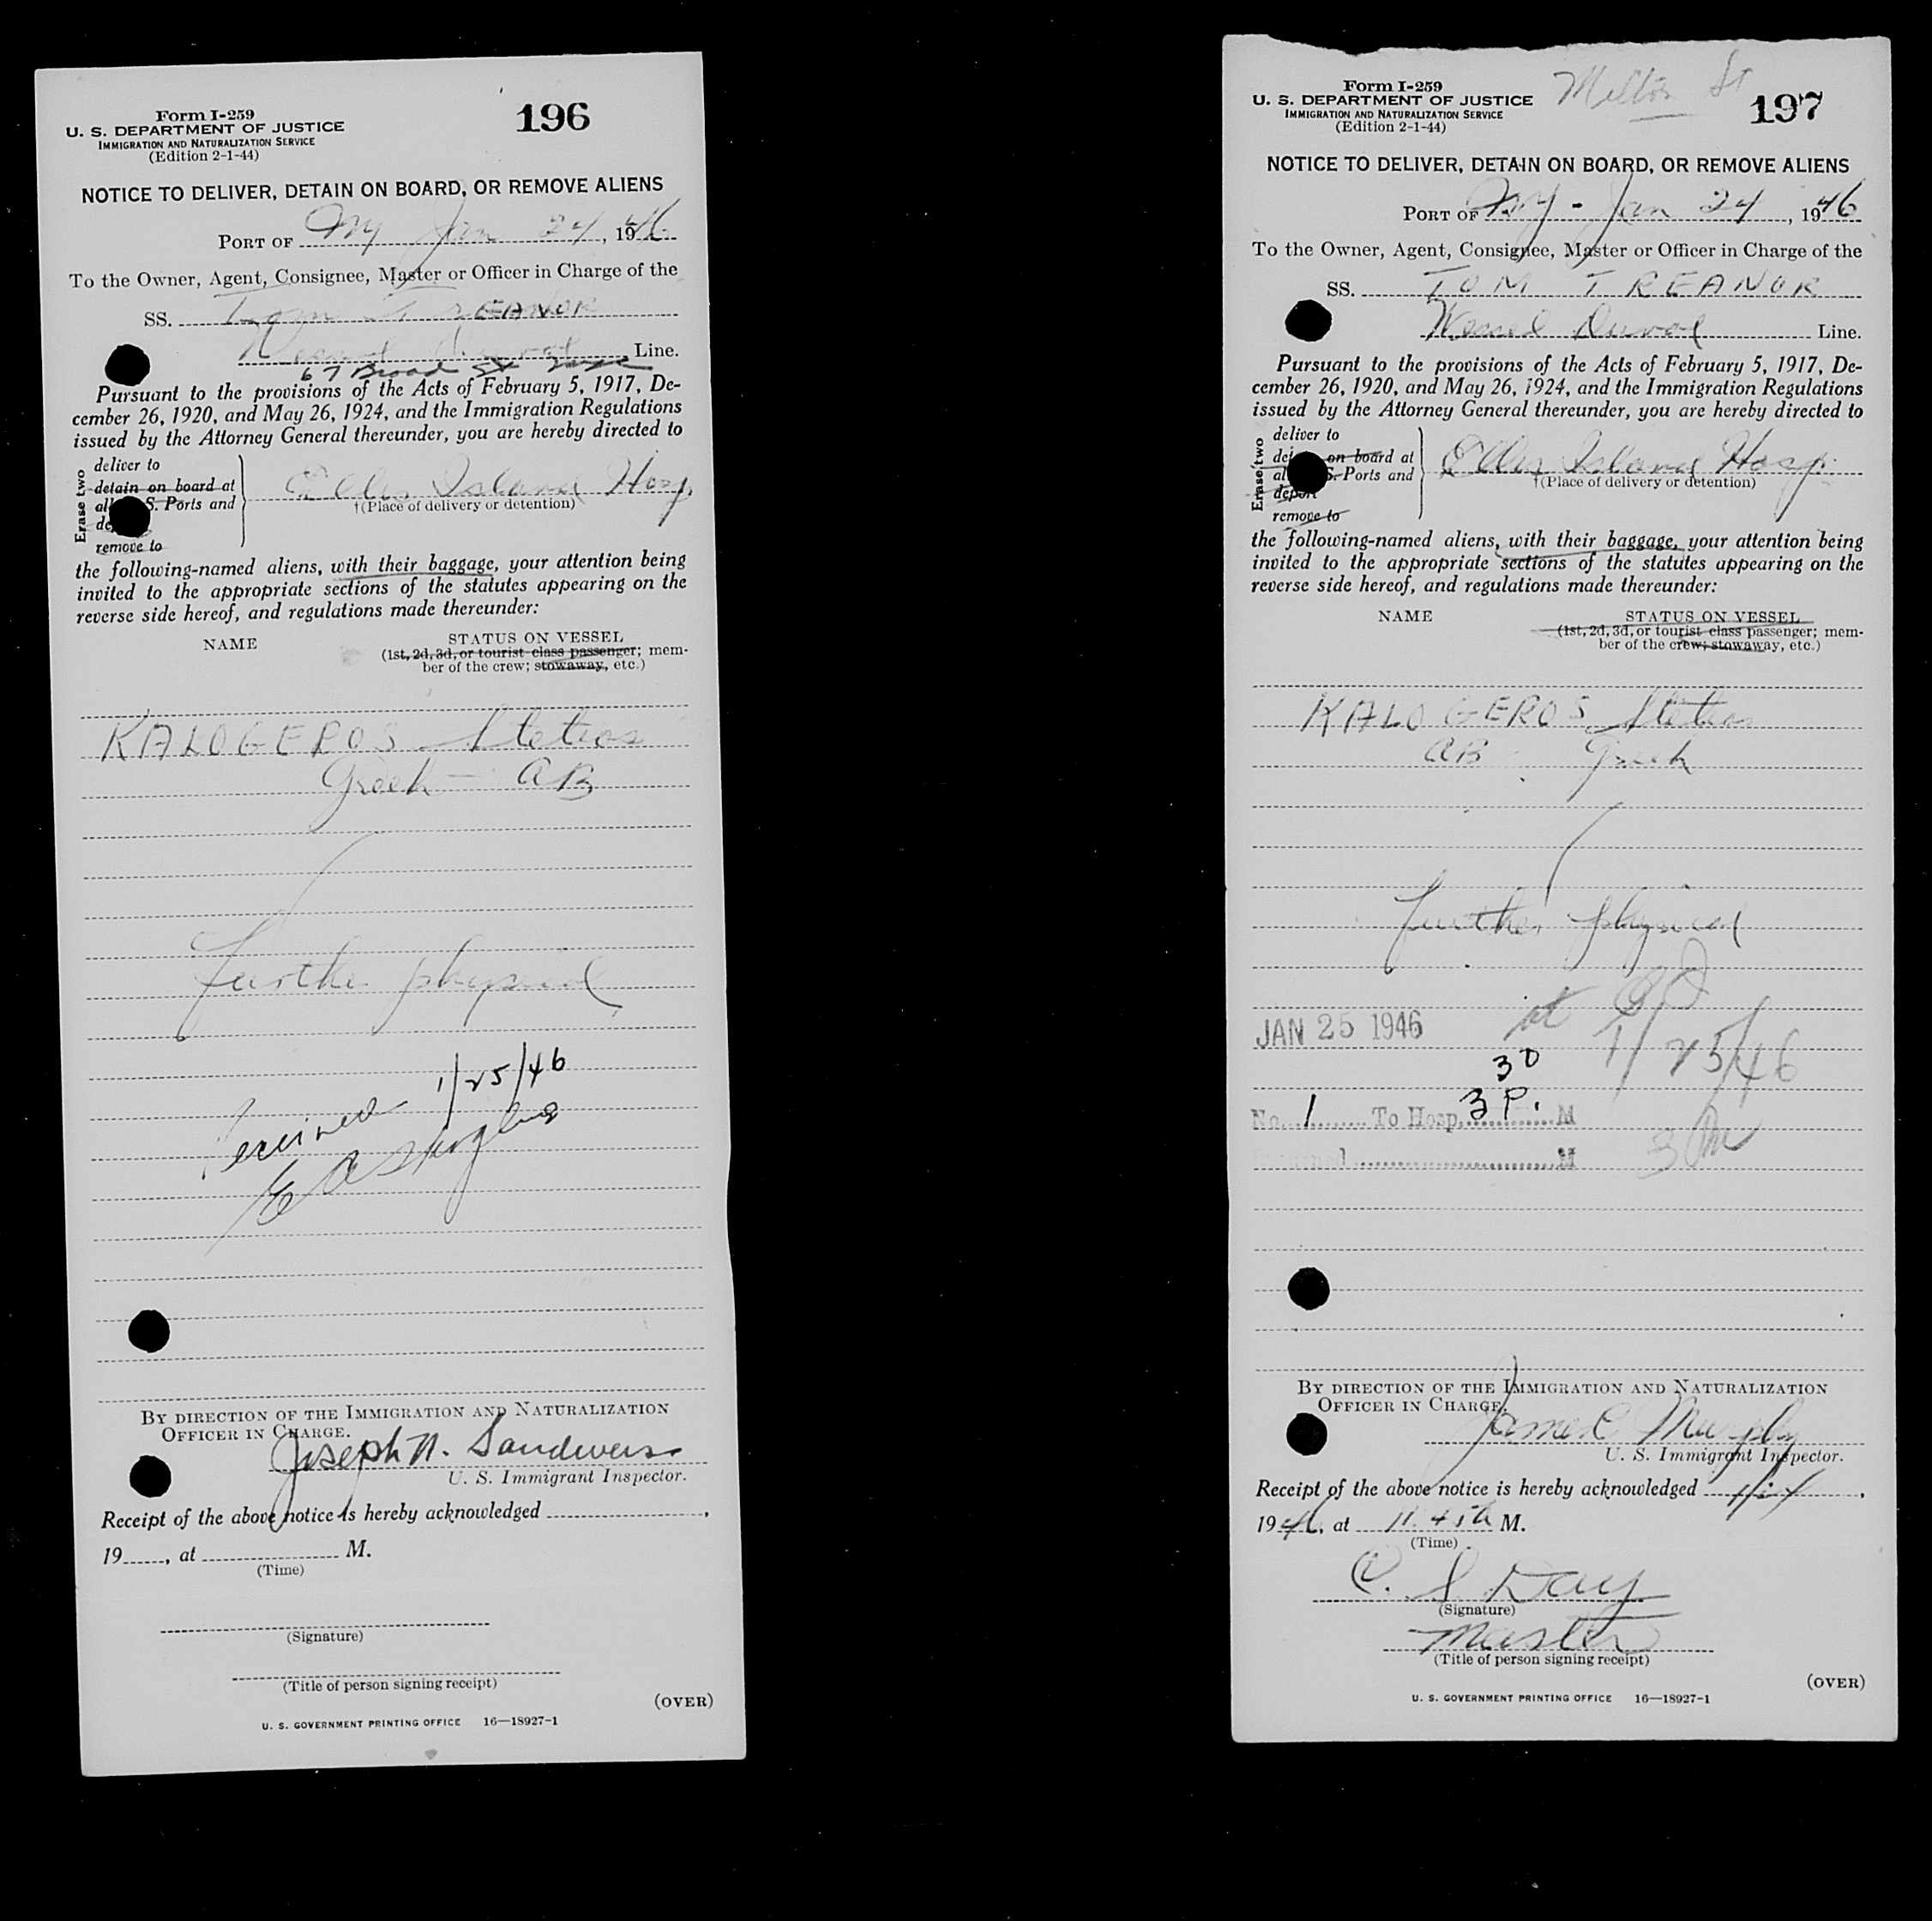 Form I-259
U. S. DEPARTMENT OF JUSTICE
IMMIGRATION AND NATURALIZATION SERVICE
(Edition 2-1-44)
196
NOTICE TO DELIVER, DETAIN ON BOARD, OR REMOVE ALIENS
PORT OF NY Jan 24, 1946
To the Owner, Agent, Consignee, Master or Officer in Charge of the
SS. Tom TREANOR
Wessel Duval Line.
67 Broad St
Pursuant to the provisions of the Acts of February 5, 1917, De-
cember 26, 1920, and May 26, 1924, and the Immigration Regulations
issued by the Attorney General thereunder, you are hereby directed to
Erase two
deliver to
detain on board at
all S. Ports and
remove to
Ellis Island Hosp.
†(Place of delivery or detention)
the following-named aliens, with their baggage, your attention being
invited to the appropriate sections of the statutes appearing on the
reverse side hereof, and regulations made thereunder:
NAME
STATUS ON VESSEL
(1st, 2d, 3d, or tourist class passenger; mem-
ber of the crew; stowaway, etc.)
KALOGEROS Statios
Greek - AB
further physical
Received 1/25/46
BY DIRECTION OF THE IMMIGRATION AND NATURALIZATION
OFFICER IN CHARGE.
Joseph N. Sandweiss
U. S. Immigrant Inspector.
Receipt of the above notice is hereby acknowledged ,
19 , at M.
(Time)
(Signature)
(Title of person signing receipt)
(OVER)
U. S. GOVERNMENT PRINTING OFFICE 16—18927-1
Milton St
Form I-259
U. S. DEPARTMENT OF JUSTICE
IMMIGRATION AND NATURALIZATION SERVICE
(Edition 2-1-44)
197
NOTICE TO DELIVER, DETAIN ON BOARD, OR REMOVE ALIENS
PORT OF NY - Jan 24, 1946
To the Owner, Agent, Consignee, Master or Officer in Charge of the
SS. TOM TREANOR
Wessel Duval Line.
Pursuant to the provisions of the Acts of February 5, 1917, De-
cember 26, 1920, and May 26, 1924, and the Immigration Regulations
issued by the Attorney General thereunder, you are hereby directed to
Erase two
deliver to
on board at
S. Ports and
deport
remove to
Ellis Island Hosp.
†(Place of delivery or detention)
the following-named aliens, with their baggage, your attention being
invited to the appropriate sections of the statutes appearing on the
reverse side hereof, and regulations made thereunder:
NAME
STATUS ON VESSEL
(1st, 2d, 3d, or tourist class passenger; mem-
ber of the crew; stowaway, etc.)
KALOGEROS Statios
AB - Greek
further physical
at
JAN 25 1946
1/25/46
30
No. 1 To Hosp. 3 P. M
M
3 PM
BY DIRECTION OF THE IMMIGRATION AND NATURALIZATION
OFFICER IN CHARGE.
James Murphy
U. S. Immigrant Inspector.
Receipt of the above notice is hereby acknowledged 1/24,
1946, at 11.45 a M.
(Time)
C. S Day
(Signature)
Master
(Title of person signing receipt)
(OVER)
U. S. GOVERNMENT PRINTING OFFICE 16—18927-1